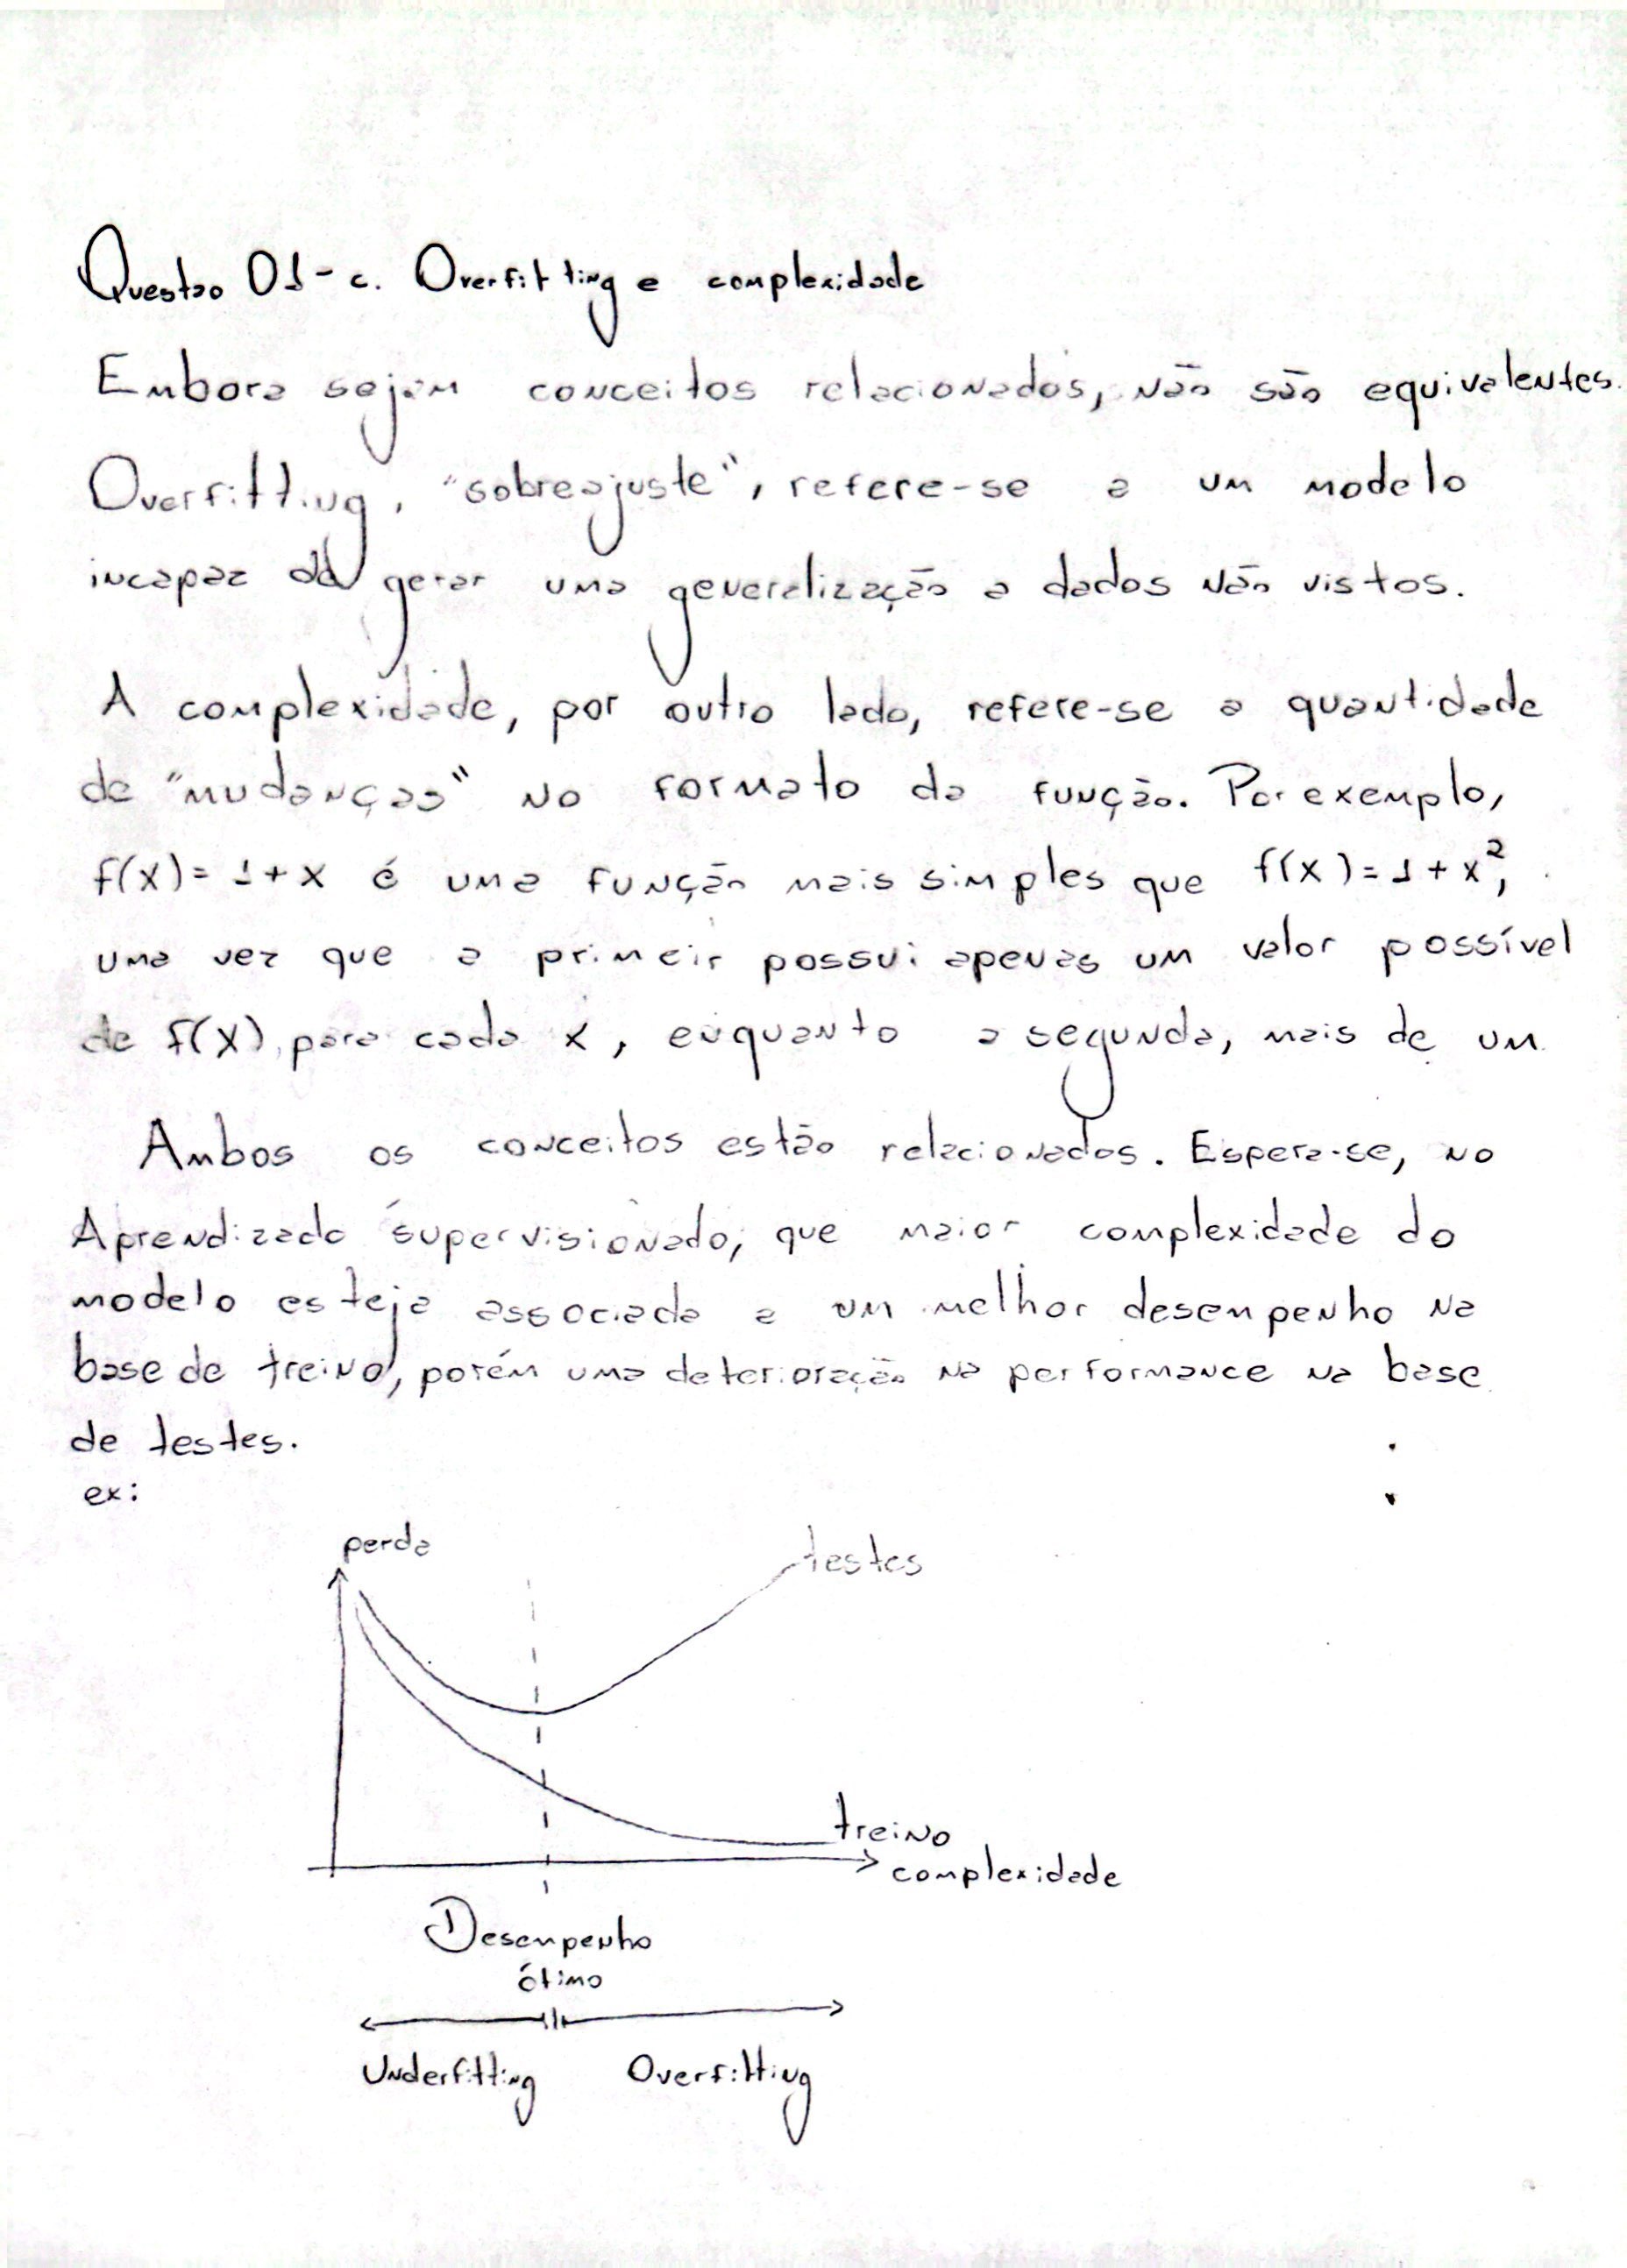 Questão 01-c. Overfitting e complexidade
Embora sejam conceitos relacionados, não são equivalentes.
Overfitting, "sobreajuste", refere-se a um modelo
incapaz de gerar uma generalização a dados não vistos.
A complexidade, por outro lado, refere-se a quantidade
de "mudanças" no formato da função. Por exemplo,
f(x)= 1+x é uma função mais simples que f(x)=1+x²,
uma vez que a primeir possui apenas um valor possível
de f(x) para cada x, enquanto a segunda, mais de um
Ambos os conceitos estão relacionados. Espera-se, no
Aprendizado supervisionado, que maior complexidade do
modelo esteja associada a um melhor desempenho na
base de treino, porém uma deterioração na performance na base
de testes.
ex:
perda
testes
treino
complexidade
Desempenho
ótimo
Underfitting Overfitting